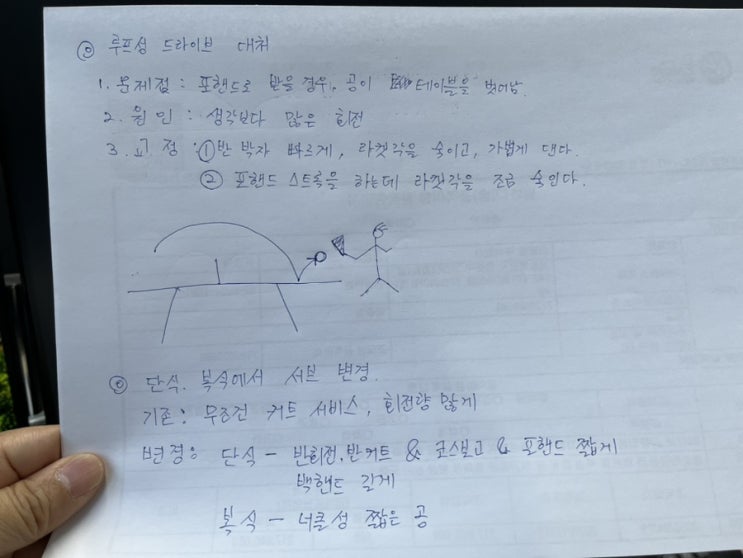 ◎ 루프성 드라이브 대처
1. 문제점 : 포핸드로 받을 경우, 공이 테이블을 벗어남.
2. 원인 : 생각보다 많은 회전
3. 교정 : ① 반 박자 빠르게, 라켓각을 숙이고, 가볍게 댄다.
② 포핸드 스트록을 하는데 라켓각을 조금 숙인다.
◎ 단식. 복식에서 서브 변경.
기존 : 무조건 커트 서비스, 회전량 많게
변경 : 단식 - 반회전, 반커트 & 코스보고 & 포핸드 짧게
백핸드 길게
복식 - 너클성 짧은 공